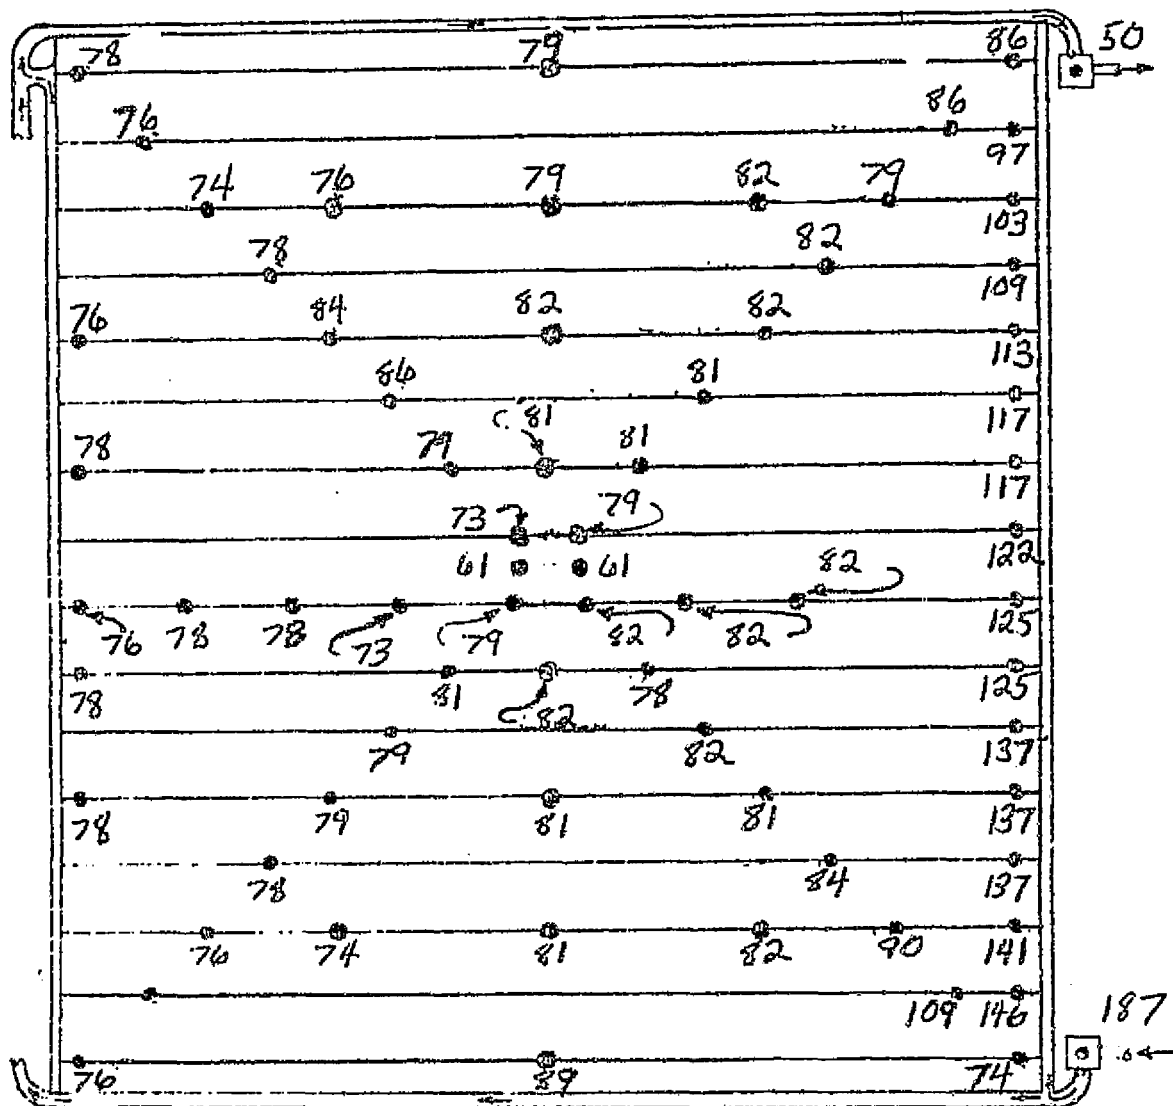 78 79 86 50
76 86 97
74 76 79 82 79 103
78 82 109
76 84 82 82 113
86 81 117
81
78 79 81 117
73 79 122
61 61
82
76 78 78 73 79 82 82 125
78 81 82 78 125
79 82 137
78 79 81 81 137
78 84 137
76 74 81 82 90 141
109 146 187
76 89 74